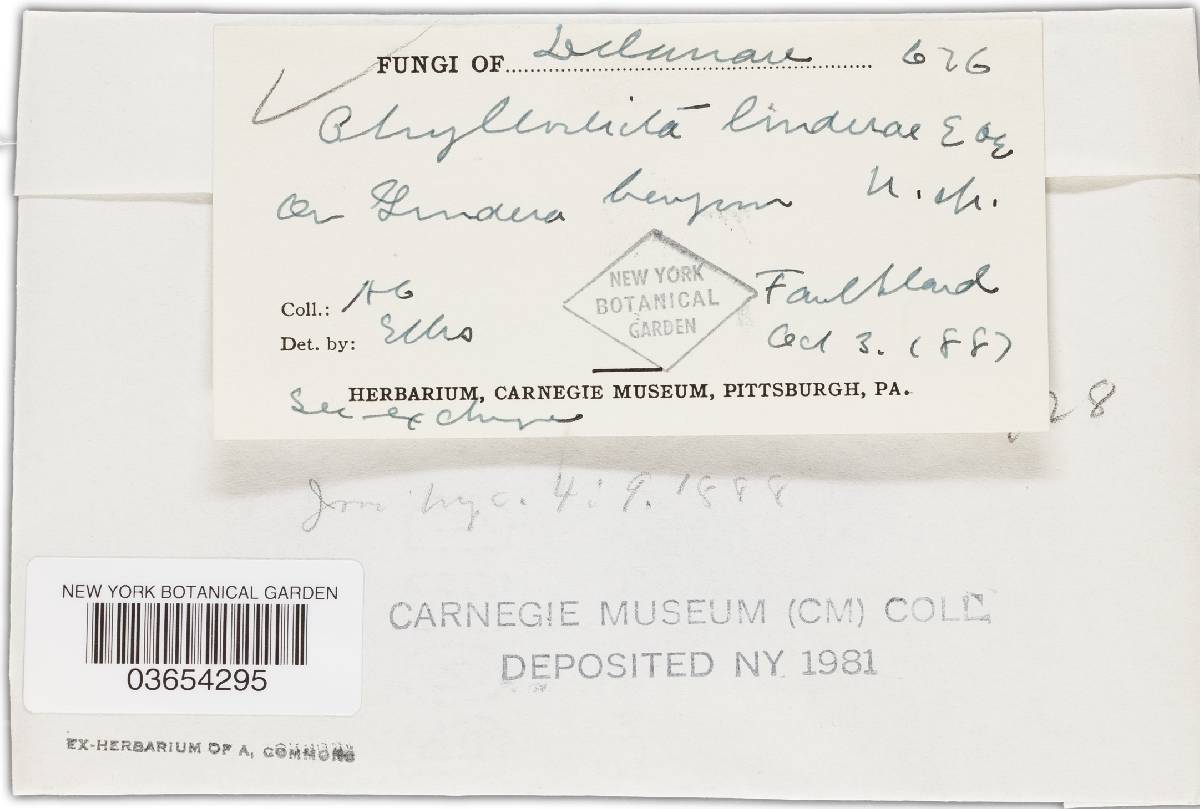 FUNGI OF Delaware 626
Phyllosticta linderae E & E
on Lindera benzoin n. sp.
NEW YORK
BOTANICAL
GARDEN
Faulkland
Coll.:
Det. by: Ellis
Oct 3. 1887
HERBARIUM, CARNEGIE MUSEUM, PITTSBURGH, PA.
See exchange
28
Jour Myc. 4:9. 1888
NEW YORK BOTANICAL GARDEN
03654295
CARNEGIE MUSEUM (CM) COLL.
DEPOSITED NY 1981
EX-HERBARIUM OF A. COMMONS